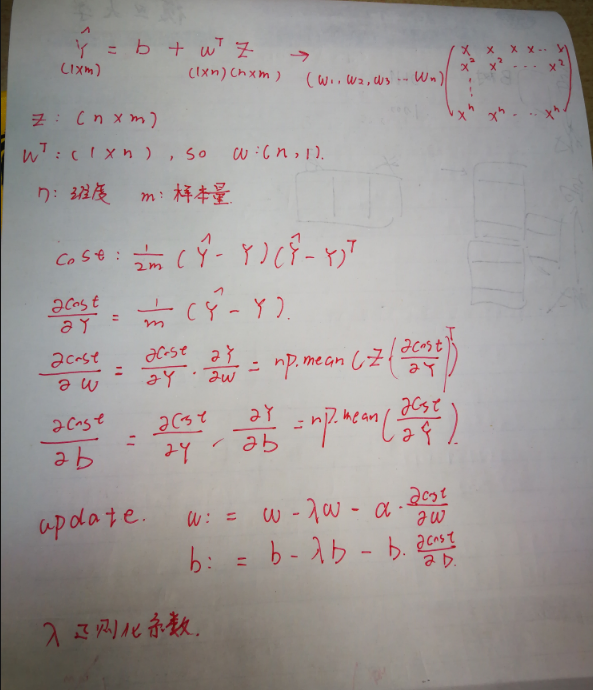 Ŷ = b + wᵀ Z → (w₁, w₂, w₃ ... wₙ) ( x x x x ·· x
(1×m) (1×n) (n×m) x² x² ··· x²
⋮
xⁿ xⁿ ··· xⁿ )
Z : (n × m)
wᵀ : (1 × n) , so w : (n, 1).
n: 维度 m: 样本量.
cost : 1/2m (Ŷ - Y)(Ŷ - Y)ᵀ
∂cost/∂Y = 1/m (Ŷ - Y).
∂cost/∂w = ∂cost/∂Y · ∂Y/∂w = np.mean(Z(∂cost/∂Y)ᵀ)
∂cost/∂b = ∂cost/∂Y · ∂Y/∂b = np.mean(∂cost/∂Ŷ).
update. w: = w - λw - α · ∂cost/∂w
b: = b - λb - b. ∂cost/∂b.
λ 正则化系数.